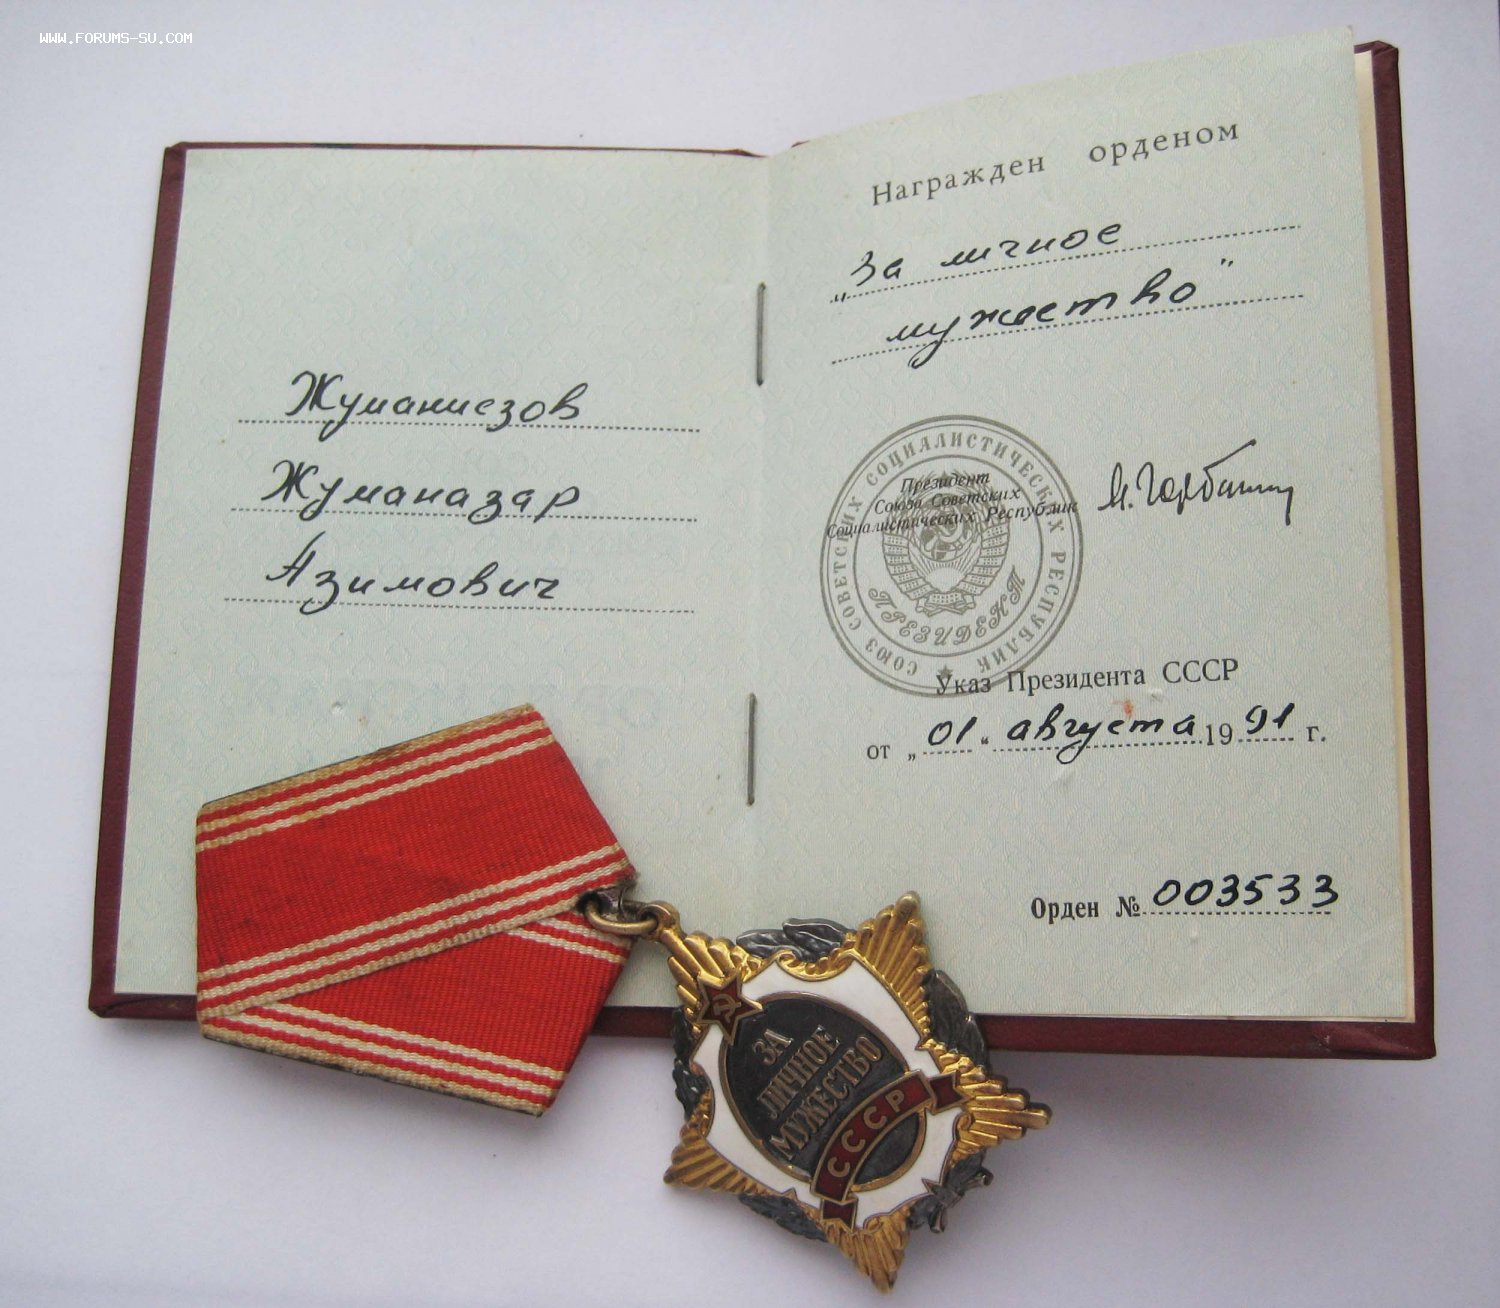 WWW.FORUMS-SU.COM
Жуманиезов
Жуманазар
Азимович
Награжден орденом
„За личное
мужество"
СОЮЗ СОВЕТСКИХ СОЦИАЛИСТИЧЕСКИХ РЕСПУБЛИК
Президент
Союза Советских
Социалистических Республик
ПРЕЗИДЕНТ
М. Горбачев
Указ Президента СССР
от „01" августа 1991 г.
Орден № 003533
ЗА
ЛИЧНОЕ
МУЖЕСТВО
СССР